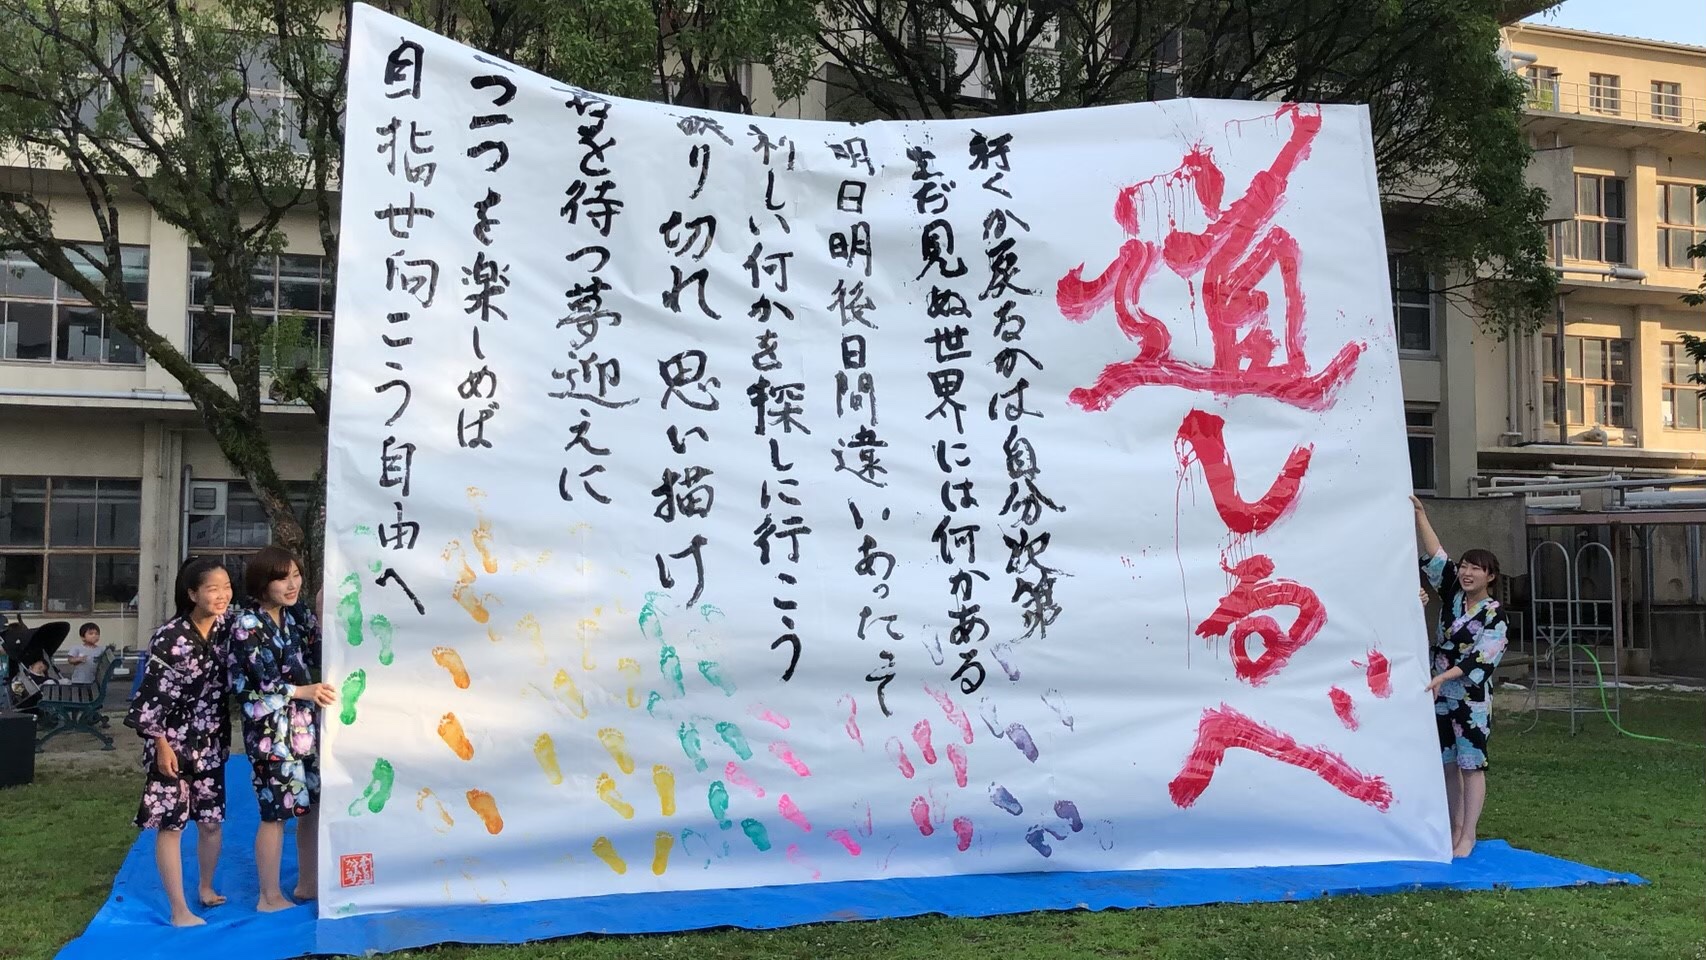 道しるべ
行くか戻るかは自分次第
まだ見ぬ世界には何かある
明日明後日間違いあったって
新しい何かを探しに行こう
振り切れ思い描け
春を待つ夢迎えに
一つ一つを楽しめば
目指せ向こう自由へ